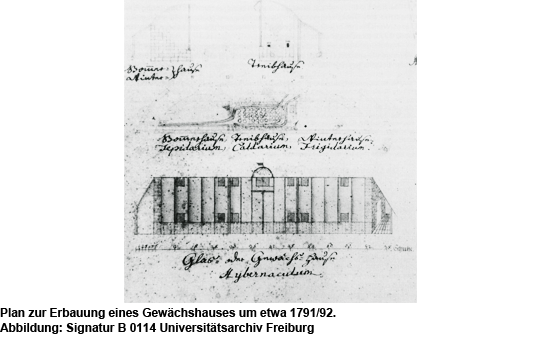 Sommer- haus
Winter-
Treibhaus
Sommerhaus, Treibhaus, Winterhaus,
Tepidarium, Caldarium, Frigidarium.
Glas= oder Gewächs=haus
Hybernaculum
Plan zur Erbauung eines Gewächshauses um etwa 1791/92.
Abbildung: Signatur B 0114 Universitätsarchiv Freiburg